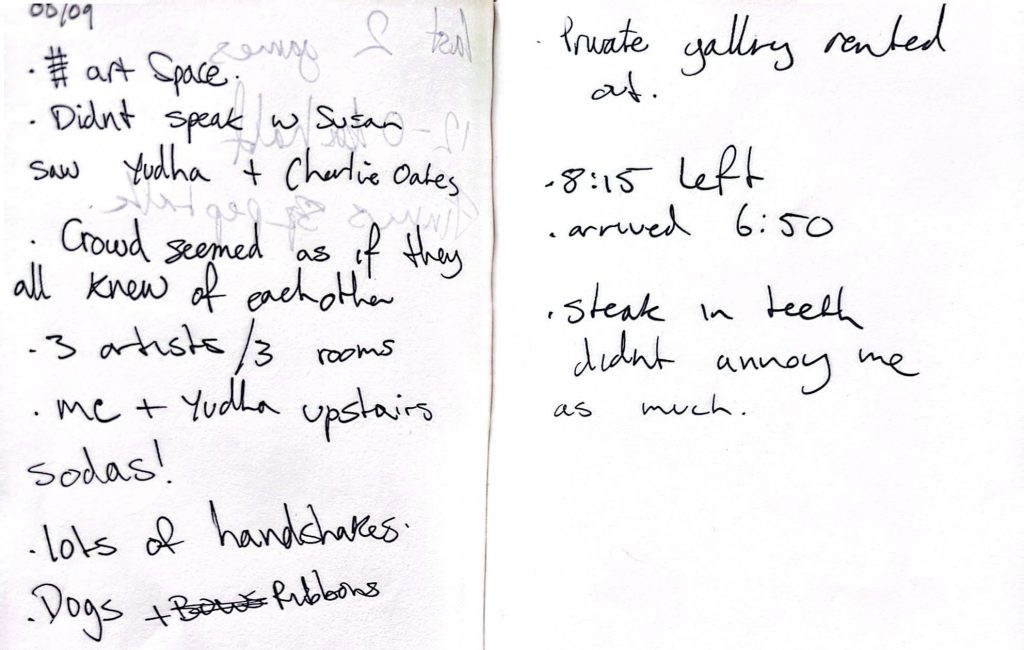 00/09
· # art Space.
· Didnt speak w Susan
saw Yudha + Charlie Oates
· Crowd seemed as if they
all knew of eachother
· 3 artists / 3 rooms
· me + Yudha upstairs
sodas!
· lots of handshakes.
· Dogs + Bows Ribbons
· Private gallery rented
out.
· 8:15 left
· arrived 6:50
· steak in teeth
didnt annoy me
as much.